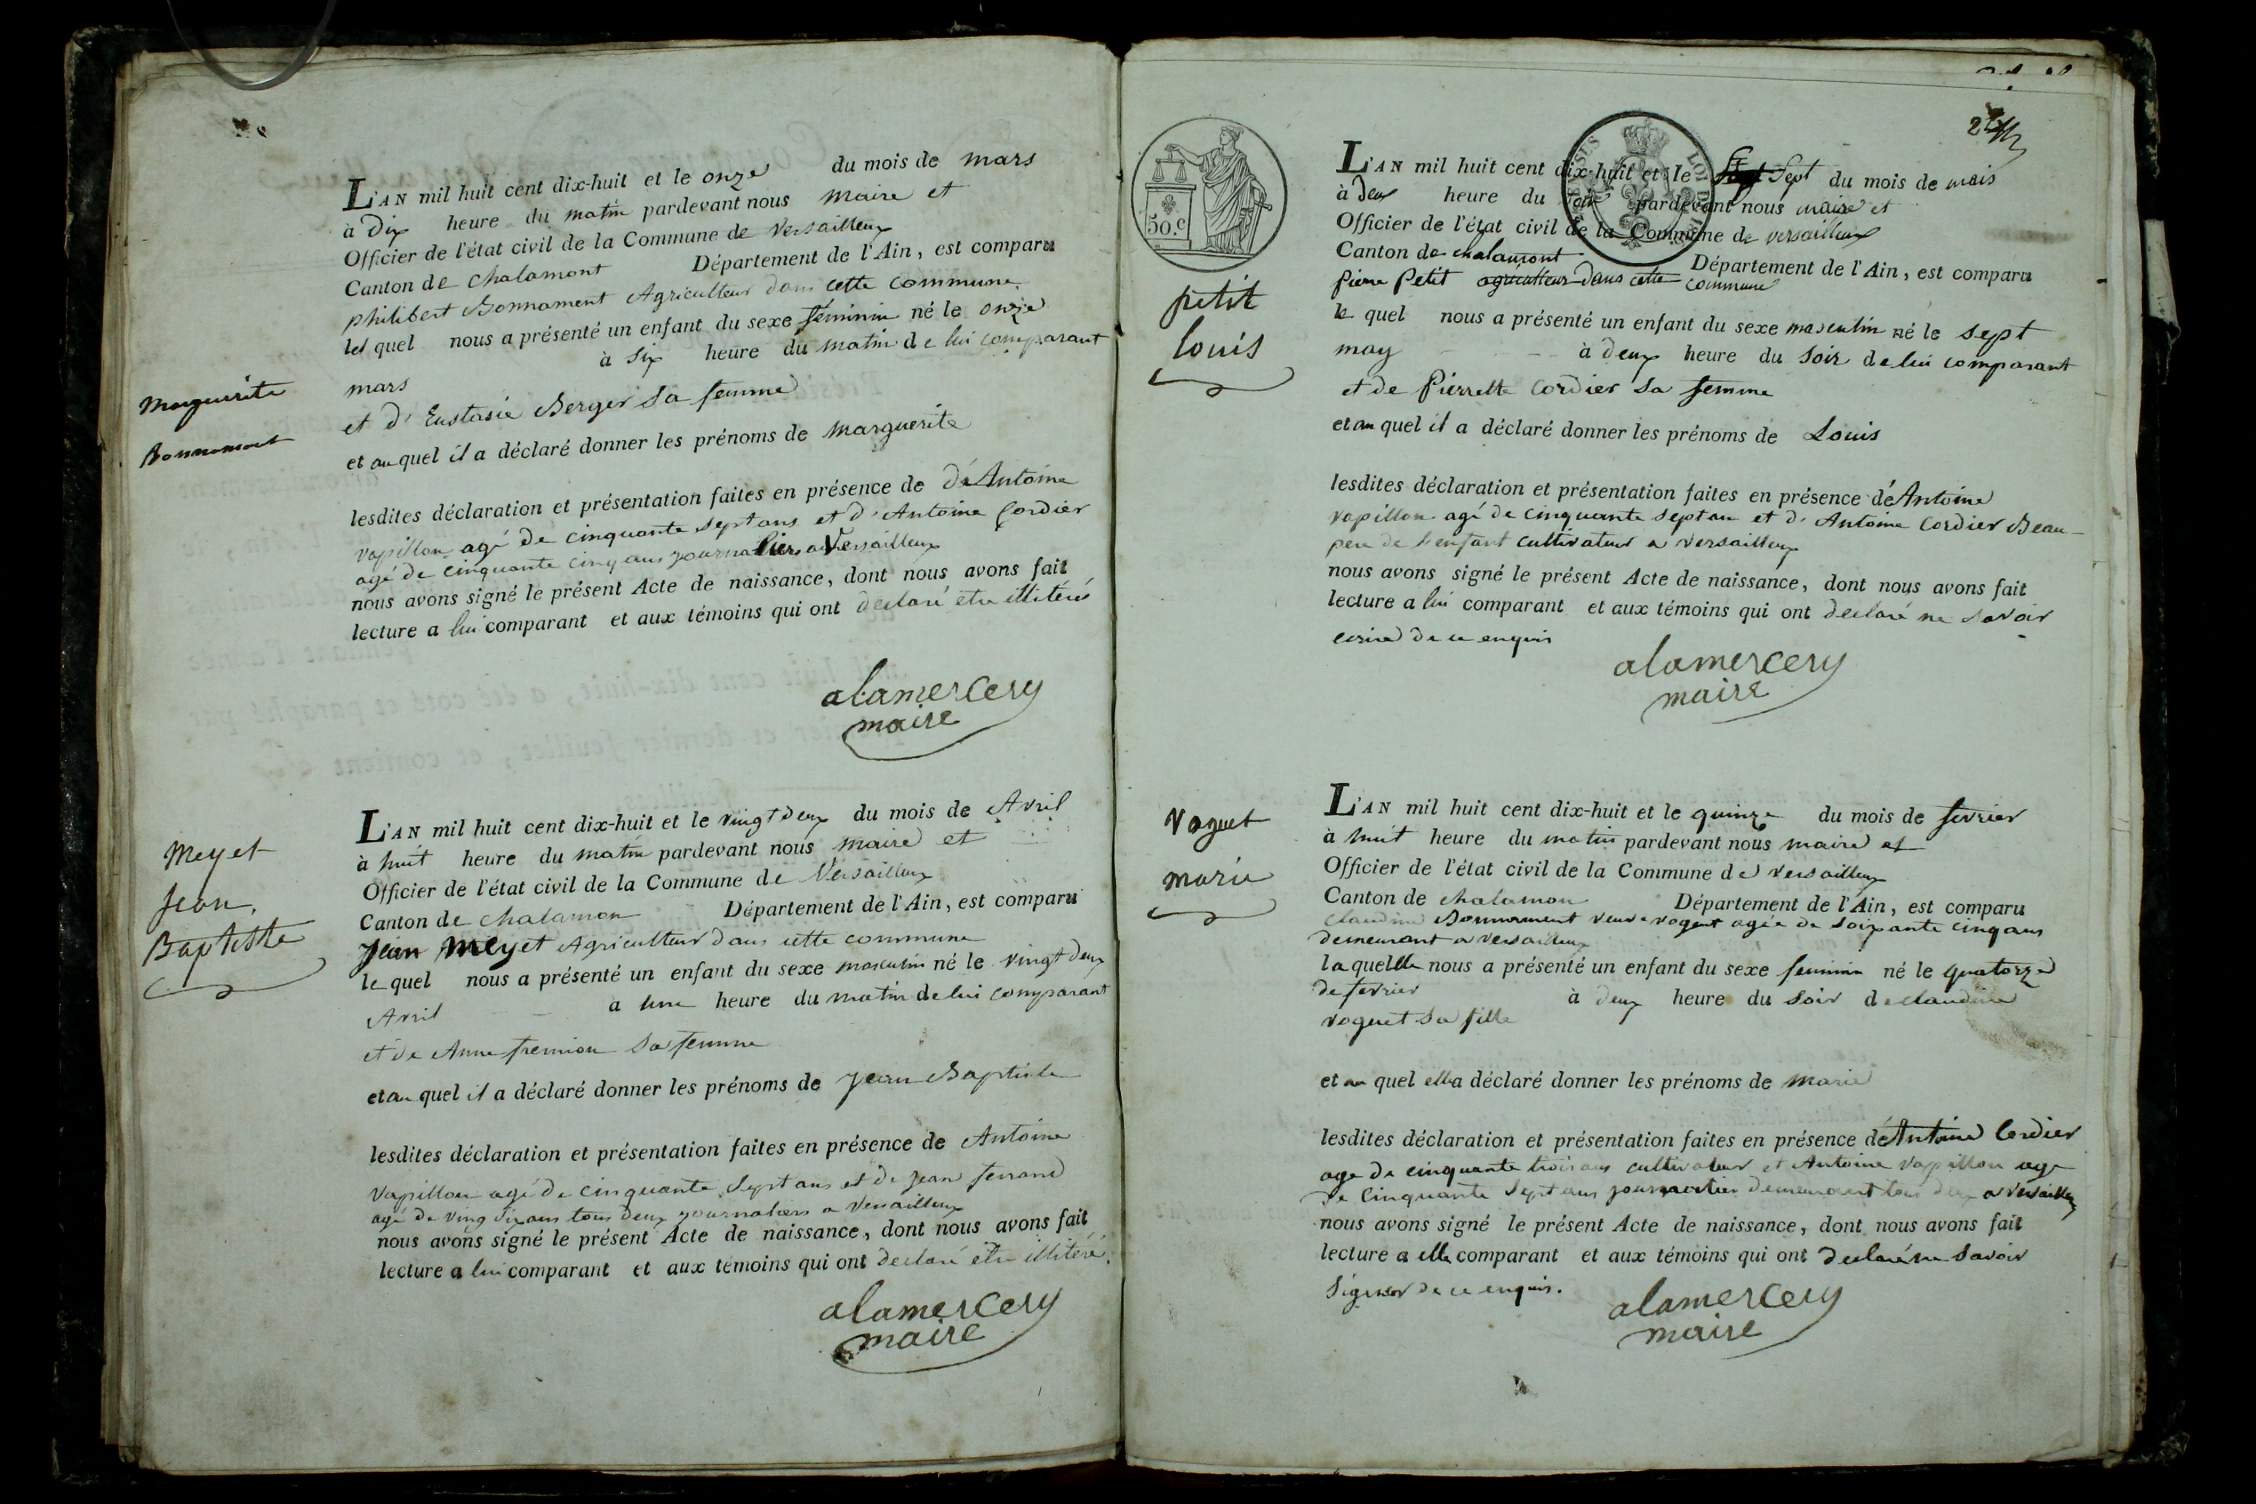 Marguerite
Bonnament
L'AN mil huit cent dix-huit et le onze du mois de mars
à dix heure du matin pardevant nous maire et
Officier de l'état civil de la Commune de Versailleux
Canton de Chalamont Département de l'Ain, est comparu
philibert Bonnament Agriculteur dans cette commune
lequel nous a présenté un enfant du sexe féminin né le onze
mars à six heure du matin de lui comparant
et d'Eustasie Berger sa femme
et au quel il a déclaré donner les prénoms de Marguerite
lesdites déclaration et présentation faites en présence de d'Antoine
vapillon agé de cinquante sept ans et d'Antoine Cordier
agé de cinquante cinq ans journaliers a Versailleux
nous avons signé le présent Acte de naissance, dont nous avons fait
lecture a lui comparant et aux témoins qui ont declaré etre illitérés
alamercery
maire
Meyet
Jean
Baptiste
L'AN mil huit cent dix-huit et le vingt deux du mois de Avril
à huit heure du matin pardevant nous maire et
Officier de l'état civil de la Commune de Versailleux
Canton de chalamon Département de l'Ain, est comparu
Jean Meyet Agriculteur dans cette commune
le quel nous a présenté un enfant du sexe masculin né le vingt deux
Avril a une heure du matin de lui comparant
et de Anne fremion sa femme
et au quel il a déclaré donner les prénoms de Jean Baptiste
lesdites déclaration et présentation faites en présence de Antoine
Vapillon agé de cinquante sept ans et de Jean ferrand
agé de ving six ans tous deux journaliers a Versailleux
nous avons signé le présent Acte de naissance, dont nous avons fait
lecture a lui comparant et aux témoins qui ont declaré etre illitéré.
alamercery
maire
50.c
petit
louis
L'AN mil huit cent dix-huit et le Sept du mois de mais
à deux heure du soir pardevant nous maire et
Officier de l'état civil de la Commune de versailleux
Canton de chalamont Département de l'Ain, est comparu
pierre Petit agriculteur dans cette commune
le quel nous a présenté un enfant du sexe masculin né le sept
may à deux heure du soir de lui comparant
et de Pierrette Cordier sa femme
et au quel il a déclaré donner les prénoms de Louis
lesdites déclaration et présentation faites en présence de Antoine
vapillon agé de cinquante sept an et d'Antoine Cordier Beau-
pere de l'enfant cultivateur a versailleux
nous avons signé le présent Acte de naissance, dont nous avons fait
lecture a lui comparant et aux témoins qui ont declaré ne savoir
ecrire de ce enquis
alamercery
maire
Voguet
marie
L'AN mil huit cent dix-huit et le quinze du mois de fevrier
à huit heure du matin pardevant nous maire et
Officier de l'état civil de la Commune de versailleux
Canton de chalamon Département de l'Ain, est comparu
claudine Bonnament veuve voguet agée de soixante cinq ans
demeurant a versailleux
la quelle nous a présenté un enfant du sexe feminin né le quatorze
de fevrier à deux heure du soir de claudine
voguet sa fille
et au quel ella déclaré donner les prénoms de marie
lesdites déclaration et présentation faites en présence de Antoine Cordier
age de cinquante trois ans cultivateur et Antoine vapillon age
de cinquante sept ans journalier demeurant tous deux a versailleux
nous avons signé le présent Acte de naissance, dont nous avons fait
lecture a elle comparant et aux témoins qui ont declaré ne savoir
signer de ce enquis.
alamercery
maire